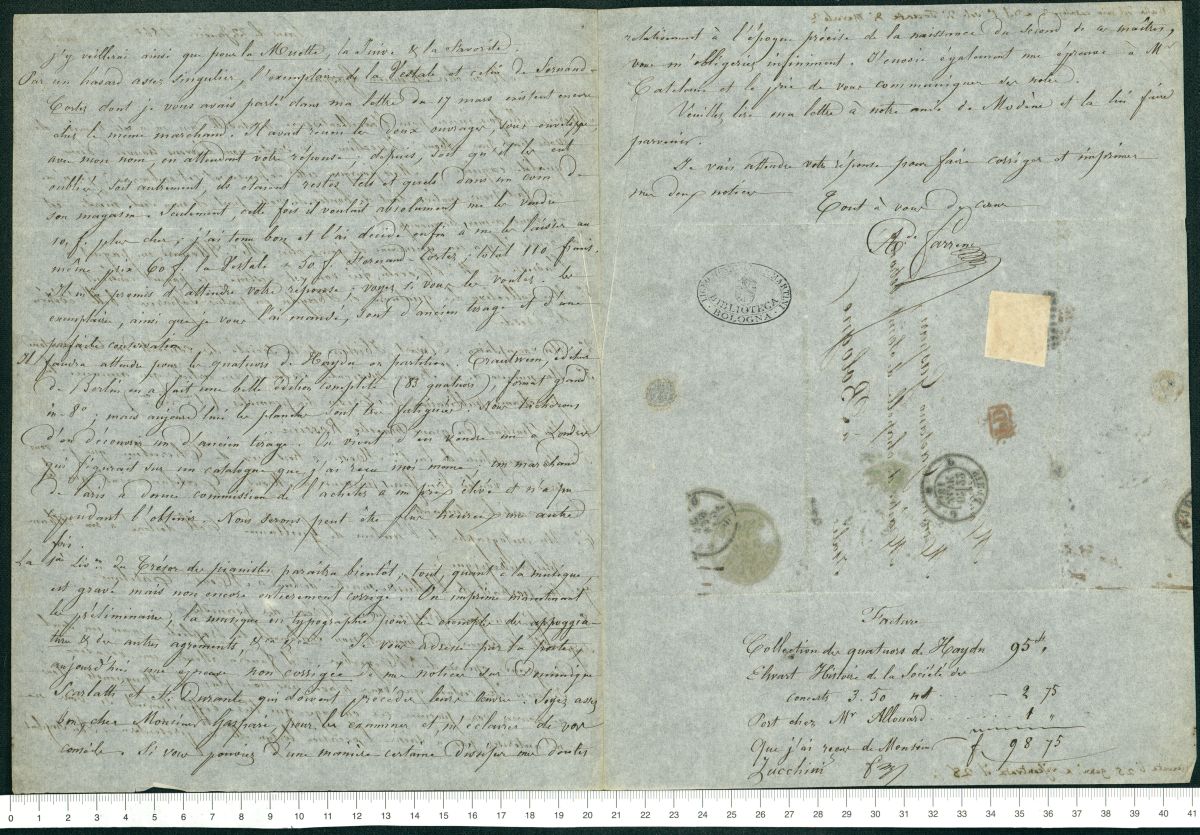 j'y veillerai ainsi que pour la Muette, la Juive & la Favorite.
Par un hasard assez singulier, l'exemplaire de la Vestale et celui de Fernand-
Cortez dont je vous avais parlé dans ma lettre du 17 mars existent encore
chez le même marchand. Il avait réuni les deux ouvrages sous enveloppe
avec mon nom, en attendant votre réponse; depuis, soit qu'il les eut
oubliés, soit autrement, ils étaient restés tels et quels dans un coin de
son magasin. Seulement, cette fois il voulait absolument me les vendre
10 f. plus cher; j'ai tenu bon et l'ai décidé enfin à me les laisser au
même prix 60 f. la Vestale & 50 f. Fernand-Cortez; total 110 francs.
Il m'a promis d'attendre votre réponse; voyez si vous les voulez les
exemplaires, ainsi que je vous l'ai mandé, sont d'ancien tirage et d'une
parfaite conservation.
Il faudra attendre pour les quatuors de Haydn en partition. Trautwein, éditeur
de Berlin en a fait une belle édition complète (83 quatuors), format grand
in-8°, mais aujourd'hui les planches sont très fatiguées: nous tâcherons
d'en découvrir un d'ancien tirage. On vient d'en vendre un à Londres
qui figurait sur un catalogue que j'ai reçu moi même; un marchand
de Paris a donné commission de l'acheter à un prix élevé et n'a pu
cependant l'obtenir. Nous serons peut être plus heureux une autre
fois.
La 1re Livon du Trésor des pianistes paraîtra bientôt, tout, quant à la musique,
est gravé mais non encore entièrement corrigé. On imprime maintenant
les préliminaires, la musique en typographie pour les exemples des appoggia-
ture & des autres agréments, &a &a &a. Je vous adresse par la poste,
aujourd'hui une épreuve non corrigée de ma notice sur Dominique
Scarlatti et sur Durante qui doivent précéder leurs œuvres. Soyez assez
bon, cher Monsieur Gaspare, pour les examiner et m'éclairer de vos
conseils. Si vous pouviez d'une manière certaine dissiper mes doutes
relativement à l'époque précise de la naissance du second de ces maîtres,
vous m'obligeriez infiniment. J'envoie également une épreuve à Mr
Catelani et le prie de vous communiquer ses notes.
Veuillez lire ma lettre à notre ami de Modène et la lui faire
parvenir.
Je vais attendre votre réponse pour faire corriger et imprimer
mes deux notices
Tout à vous de cœur
Ade Farrenc
BIBLIOTECA
BOLOGNA
à Bologne
Italie
Facture
Collection des quatuors de Haydn 95 "
Elwart Histoire de la Société des
concerts 3.50 net 2 75
Port chez Mr Allouard 1 "
f. 98 75
Que j'ai reçus de Monsieur
Zucchini
0 1 2 3 4 5 6 7 8 9 10 11 12 13 14 15 16 17 18 19 20 21 22 23 24 25 26 27 28 29 30 31 32 33 34 35 36 37 38 39 40 41